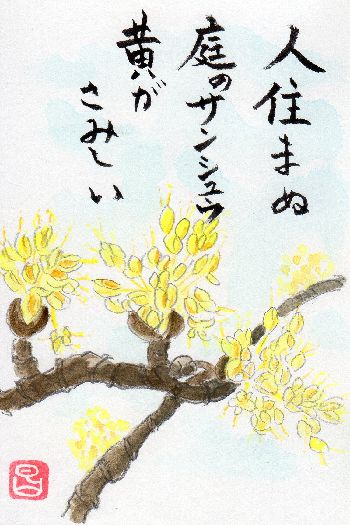 人住まぬ
庭のサンシュウ
黄が
さみしい